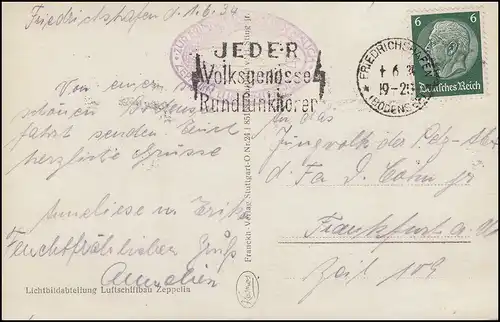 Friedrichshafen d. 1.6.34
JEDER
Volksgenosse
Rundfunkhörer
FRIEDRICHSHAFEN
1.6.34
19-20
(BODENSEE)
6 6
Deutsches Reich
Von einer so
schönen Bodensee
fahrt senden Euch
herzliche Grüsse
Anneliese
Feuchtfröhlichen Gruß
An das
Jungvolk der Pelz-
d. Fa D. Cohn jr
Frankfurt a. M
Zeil 109
Franckh-Verlag Stuttgart-O Nr.
Lichtbildabteilung Luftschiffbau Zeppelin